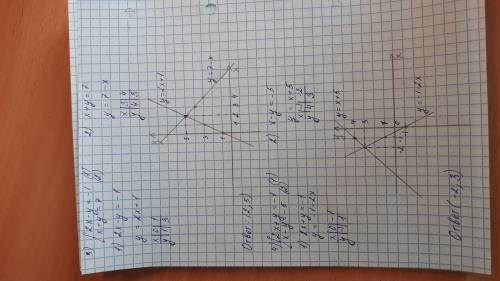 3) { 2x-y=-1 (1)
{ x+y=7 (2)
1) 2x-y=-1
y=2x+1
x | 0 | 1
y | 1 | 3
2) x+y=7
y=7-x
x | 3 | 4
y | 4 | 3
y=2x+1
y=7-x
Ответ (2, 5)
4) { 2x+y=-1 (1)
{ x-y=-5 (2)
1) 2x+y=-1
y=-1-2x
x | 0 | -1
y | -1 | 1
2) x-y=-5
y=x+5
x | -1 | -2
y | 4 | 3
y=x+5
y=-1-2x
Ответ (-2, 3)